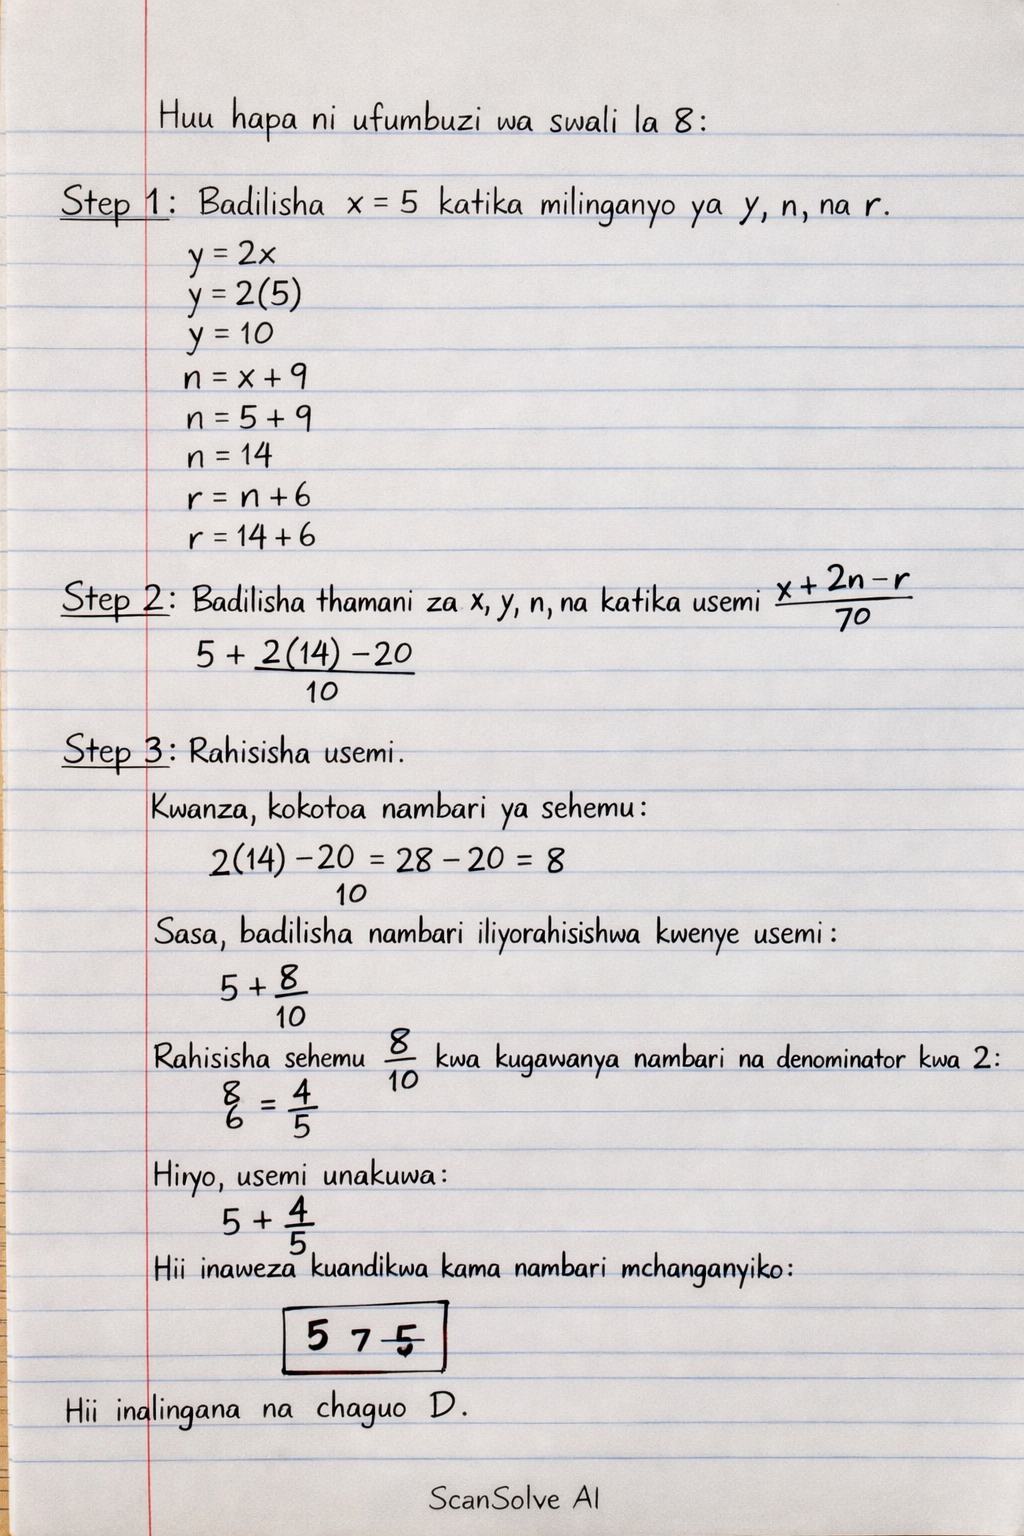 Huu hapa ni ufumbuzi wa swali la 8:
Step 1: Badilisha x = 5 katika milinganyo ya y, n, na r.
y = 2x
y = 2(5)
y = 10
n = x + 9
n = 5 + 9
n = 14
r = n + 6
r = 14 + 6
Step 2: Badilisha thamani za x, y, n, na katika usemi x + 2n - r / 70
5 + 2(14) - 20 / 10
Step 3: Rahisisha usemi.
Kwanza, kokotoa nambari ya sehemu:
2(14) - 20 = 28 - 20 = 8
10
Sasa, badilisha nambari iliyorahisishwa kwenye usemi:
5 + 8/10
Rahisisha sehemu 8/10 kwa kugawanya nambari na denominator kwa 2:
8/6 = 4/5
Hiryo, usemi unakuwa:
5 + 4/5
Hii inaweza kuandikwa kama nambari mchanganyiko:
5 7 5
Hii inalingana na chaguo D.
ScanSolve AI